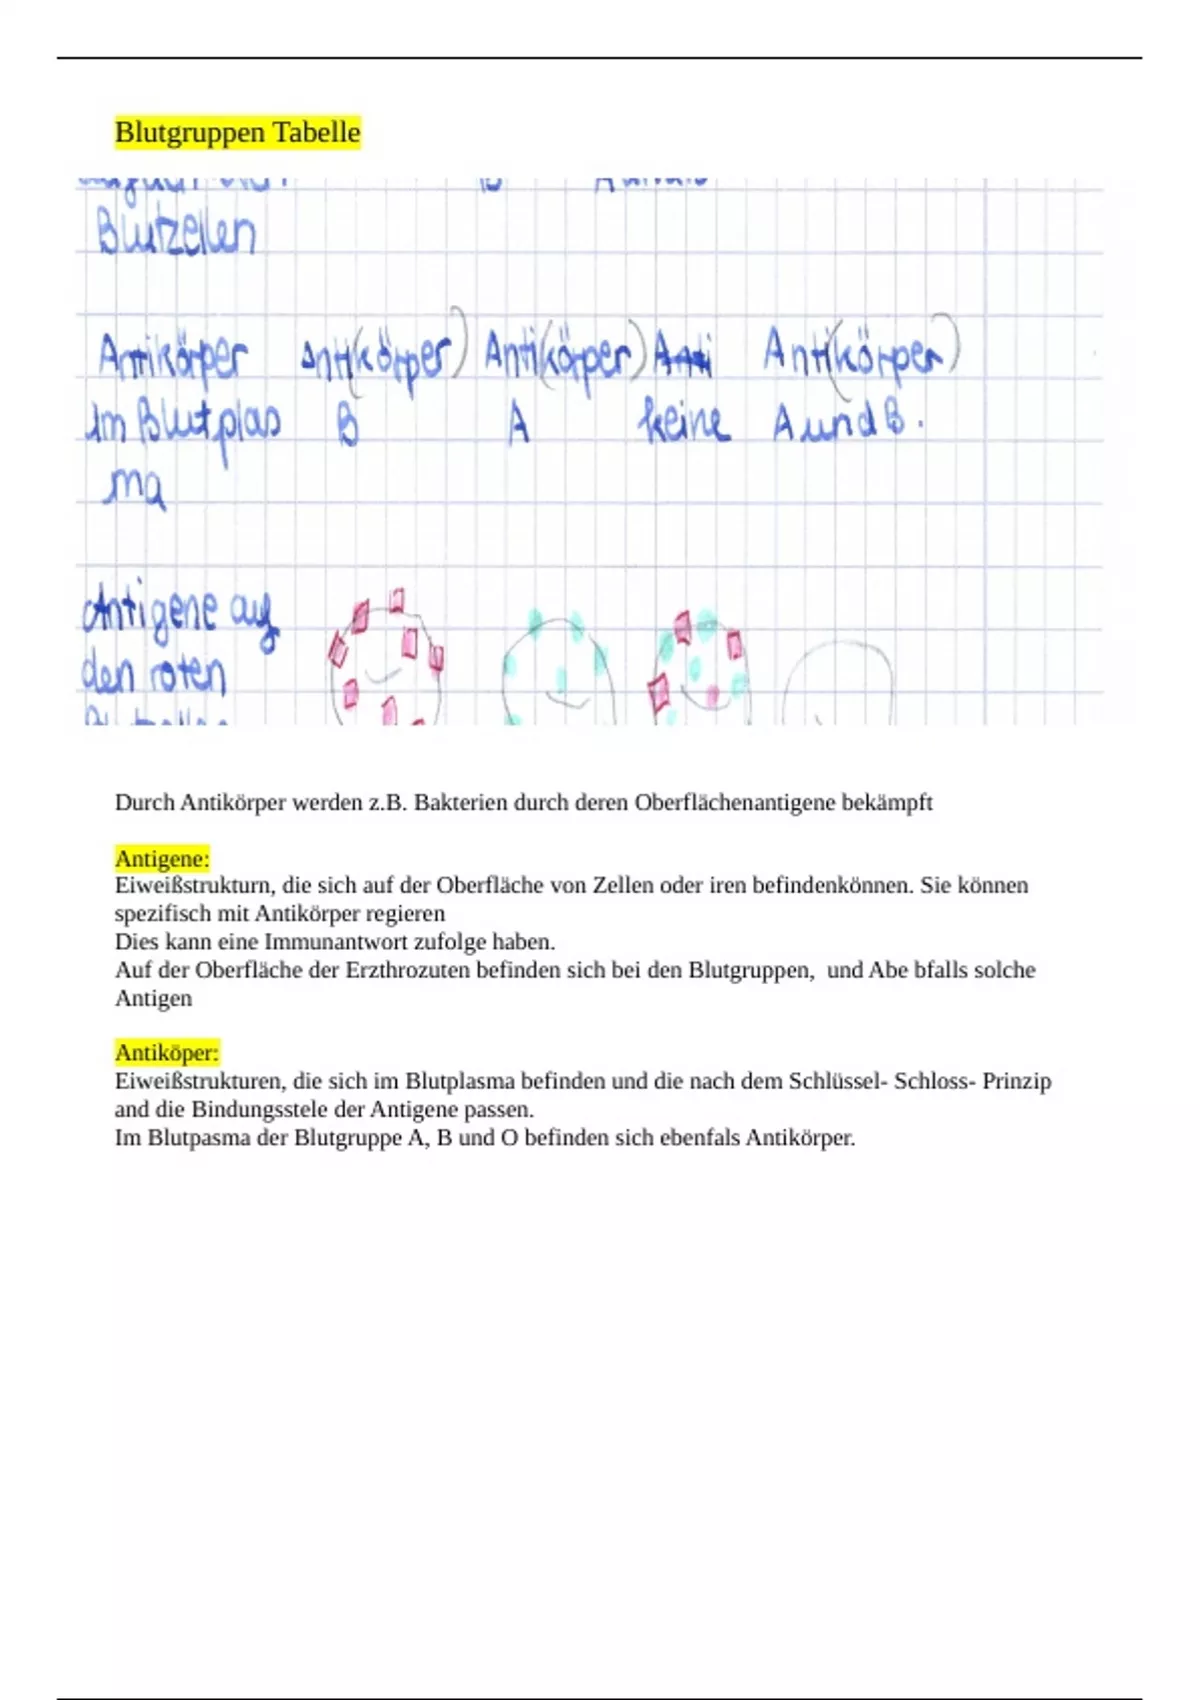 Blutgruppen Tabelle
Blutzellen
Antikörper Anti(körper) Anti(körper) Anti Anti(körper)
Im Blutplas B A keine A und B.
ma
Antigene auf
den roten
Durch Antikörper werden z.B. Bakterien durch deren Oberflächenantigene bekämpft
Antigene:
Eiweißstrukturn, die sich auf der Oberfläche von Zellen oder iren befindenkönnen. Sie können
spezifisch mit Antikörper regieren
Dies kann eine Immunantwort zufolge haben.
Auf der Oberfläche der Erzthrozuten befinden sich bei den Blutgruppen,  und Abe bfalls solche
Antigen
Antiköper:
Eiweißstrukturen, die sich im Blutplasma befinden und die nach dem Schlüssel- Schloss- Prinzip
and die Bindungsstele der Antigene passen.
Im Blutpasma der Blutgruppe A, B und O befinden sich ebenfals Antikörper.